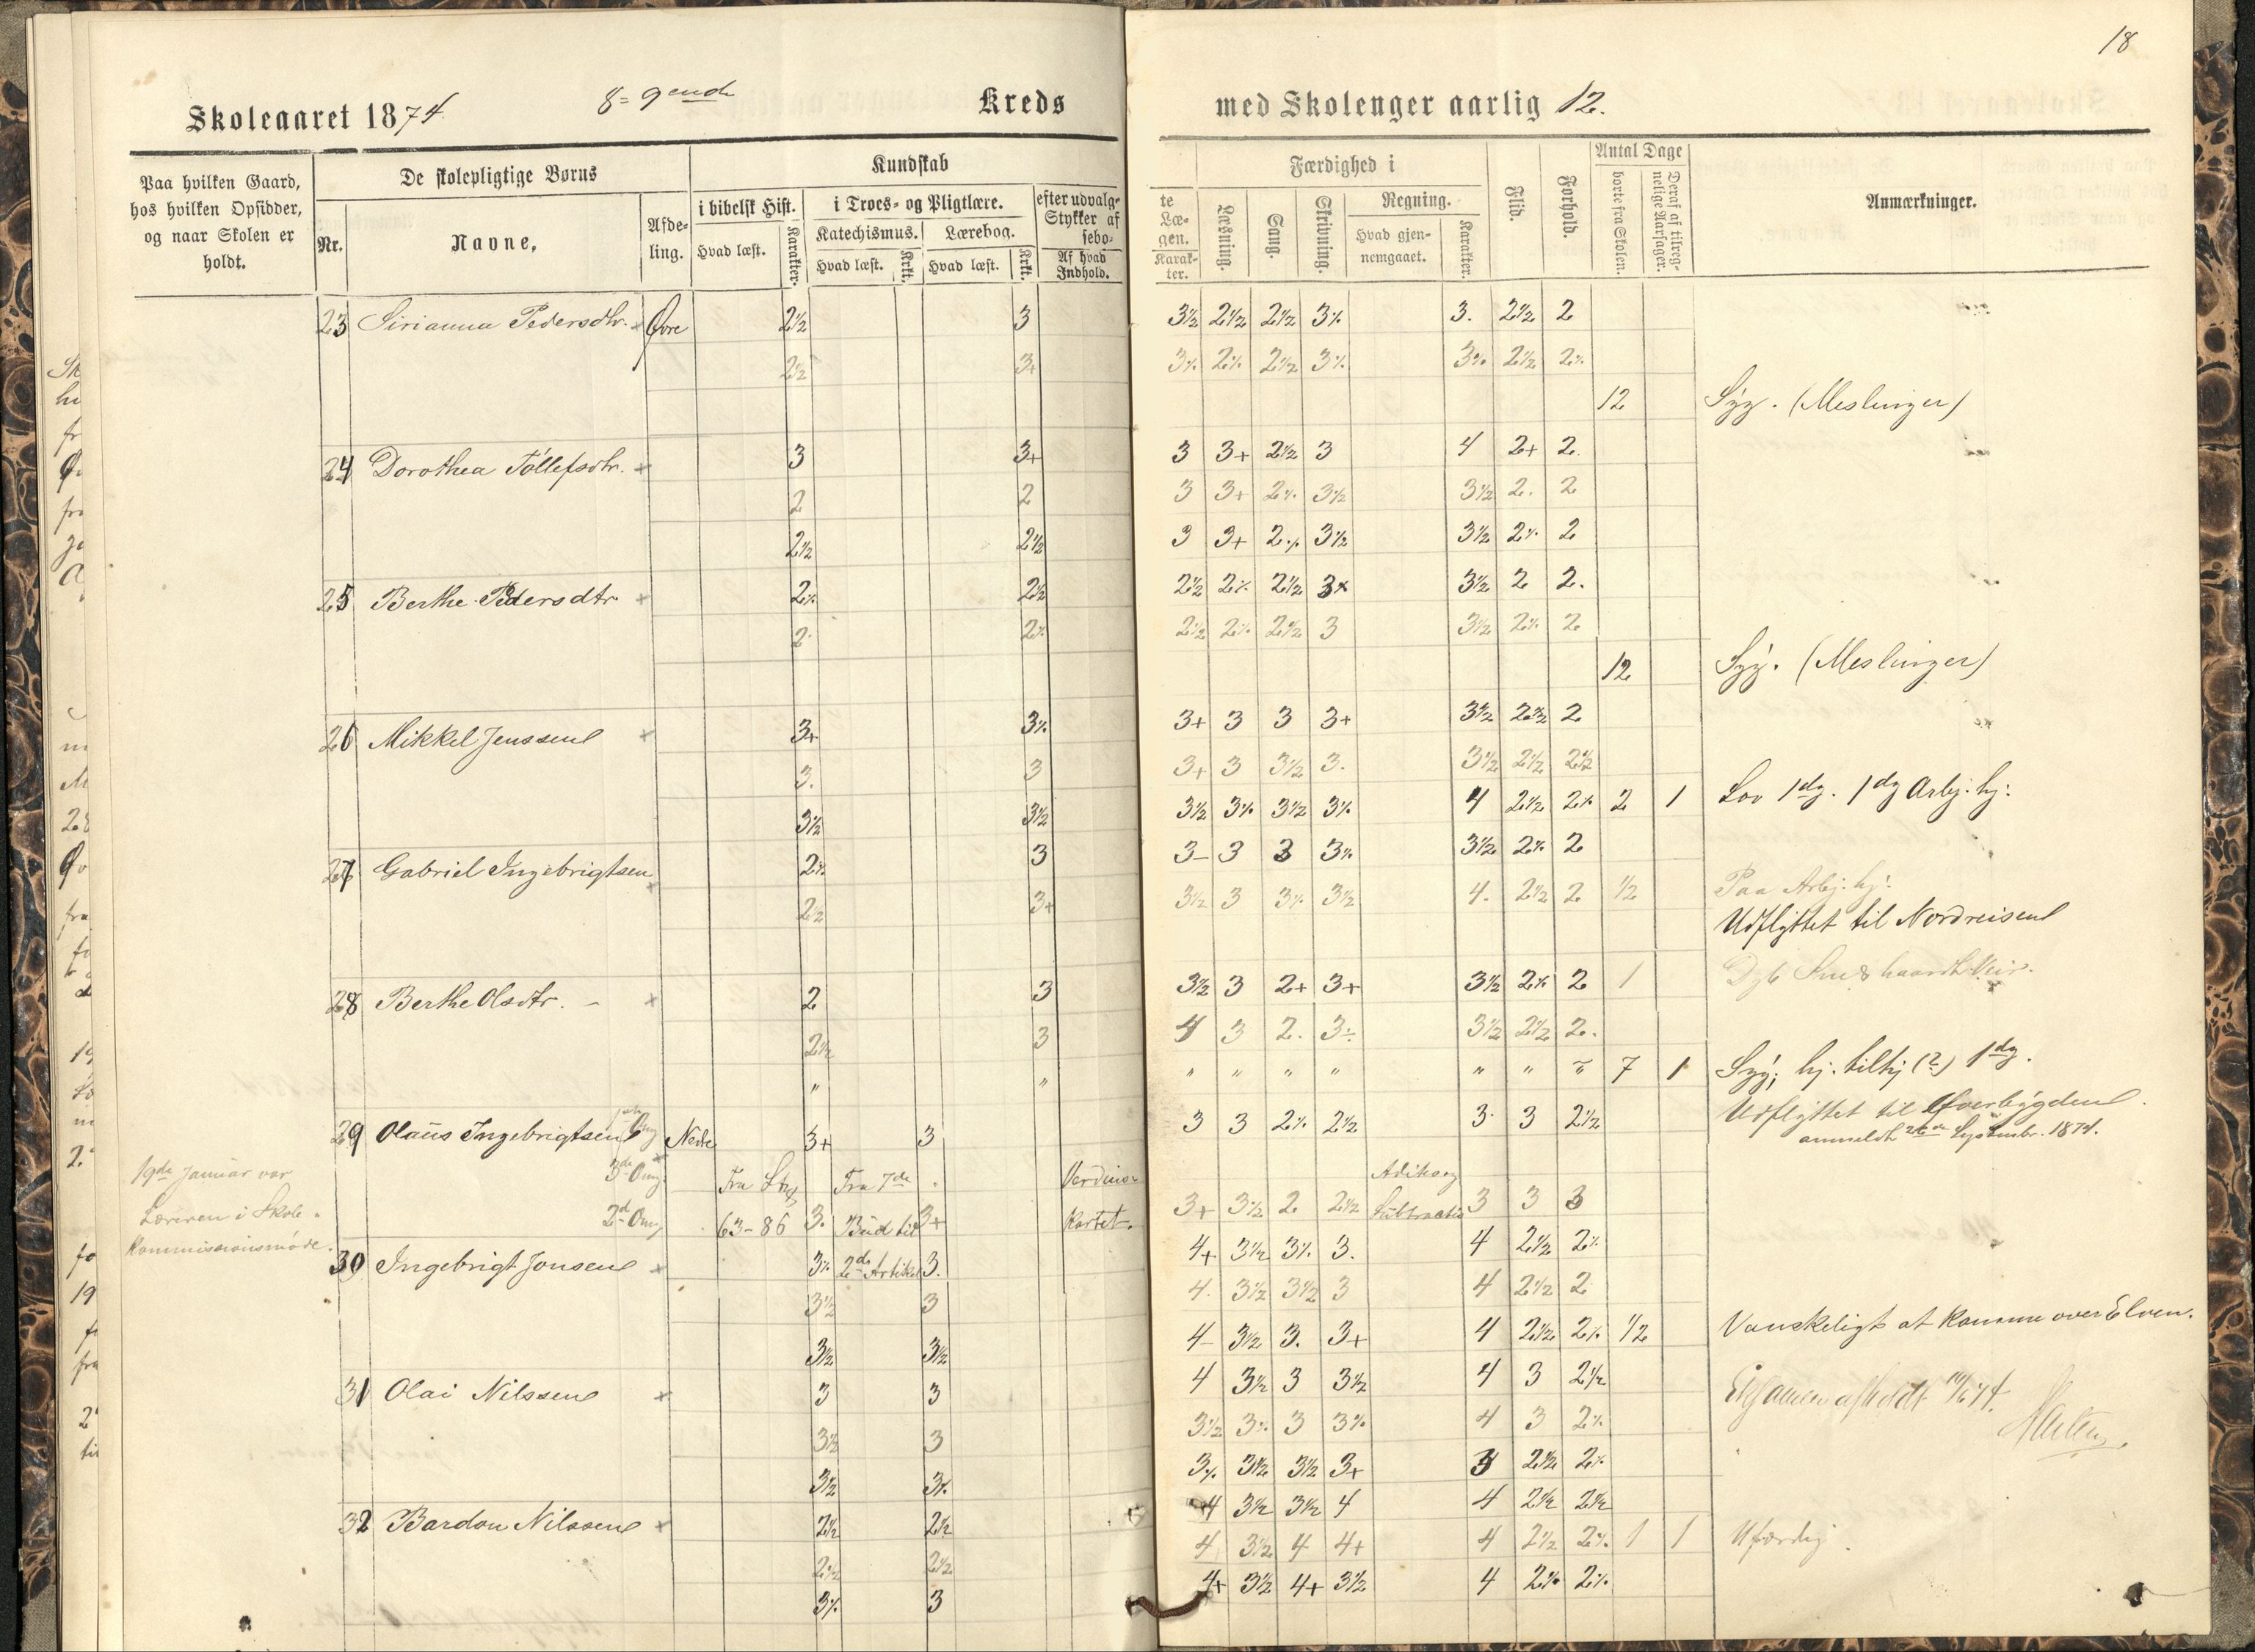 18
Skoleaaret 1874. 8=9ende Kreds med Skolenger aarlig 12.
Paa hvilken Gaard, hos hvilken Opsidder, og naar Skolen er holdt.
De skolepligtige Børns
Nr. Navne, Afde-ling.
Kundskab
i bibelsk Hist. Hvad læst. Karakter.
i Troes- og Pligtlære.
Katechismus. Hvad læst. Krkt.
Lærebog. Hvad læst. Krkt.
efter udvalg-
Stykker af
sebo-
Af hvad Indhold.
te Læ-gen. Karak-ter.
Færdighed i
Læsning. Sang. Skrivning.
Regning. Hvad gjen-nemgaaet. Karakter.
Flid. Forhold.
Antal Dage
borte fra Skolen. Deraf af tilreg-nelige Aarsager.
Anmærkninger.
23 Sirianna Pedersdtr. × Øvre 2½ 3 3½ 2½ 2½ 3% 3. 2½ 2
2½ 3+ 3% 2% 2½ 3% 3% 2½ 2%
12 Syg. (Meslinger)
24 Dorothea Tollefsdtr. × 3 3+ 3 3+ 2½ 3 4 2+ 2.
2 2 3 3+ 2% 3½ 3½ 2. 2
2½ 2½ 3 3+ 2% 3½ 3½ 2% 2
25 Berthe Pedersdtr × 2% 2½ 2½ 2% 2½ 3+ 3½ 2 2.
2 2% 2½ 2% 2½ 3 3½ 2% 2
12 Syg. (Meslinger)
26 Mikkel Jenssen × 3+ 3% 3+ 3 3 3+ 3½ 2½ 2
3. 3 3+ 3 3½ 3. 3½ 2½ 2½
3½ 3½ 3½ 3% 3½ 3% 4 2½ 2% 2 1 Lov 1dg. 1dg Arbj. hj:
27 Gabriel Ingebrigtsen × 2% 3 3- 3 3 3% 3½ 2% 2
2½ 3+ 3½ 3 3% 3½ 4. 2½ 2 ½ Paa Arbj. hj:
Udflyttet til Nordreisen
28 Berthe Olsdtr. - × 2 3 3½ 3 2+ 3+ 3½ 2% 2 1 haardt Veir.
2½ 3 4 3 2. 3÷ 3½ 2½ 2.
" " " " " " " " " 7 1 Syg; hj. tilhj (2) 1dg.
29 Olaus Ingebrigtsen 1ste Omg Nedre 3+ 3 3 3 2% 2½ 3. 3 2½ Udflyttet til Øverbygden.
anmeldt September 1874.
19de Januar var
Læreren i Skole-
kommissionsmøde.
3de Omg Fra Fra 7de Verdens- Adik og
2d Omg 63-86 3. Bud til 3+ Kartet. 3+ 3½ 2 2½ Subtractio 3 3 3
30 Ingebrigt Jonsen × 3% 2de Artikel 3. 4+ 3½ 3% 3. 4 2½ 2%
3½ 3 4. 3½ 3½ 3 4 2½ 2
3½ 3½ 4- 3½ 3. 3+ 4 2½ 2% ½ Vanskeligt at komme over Elven.
31 Olai Nilssen × 3 3 4 3½ 3 3½ 4 3 2½ Eksamen afholdt
3½ 3 3½ 3% 3 3% 4 3 2%
3½ 3% 3% 3½ 3½ 3+ 2½ 2%
32 Bardon Nilssen × 2½ 2½ 4 3½ 3½ 4 4 2½ 2½
2½ 2½ 4 3½ 4 4+ 4 2½ 2% 1 1 Ufærdig.
3% 3 4+ 3½ 4+ 3½ 4 2% 2%